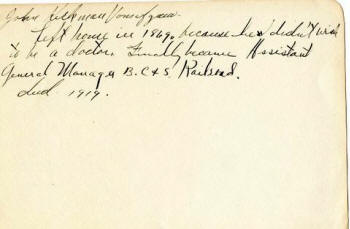 John
Left home in 1869, because he didn't wish
to be a doctor. Finally became Assistant
General Manager B. C & S. Railroad.
Died 1919.